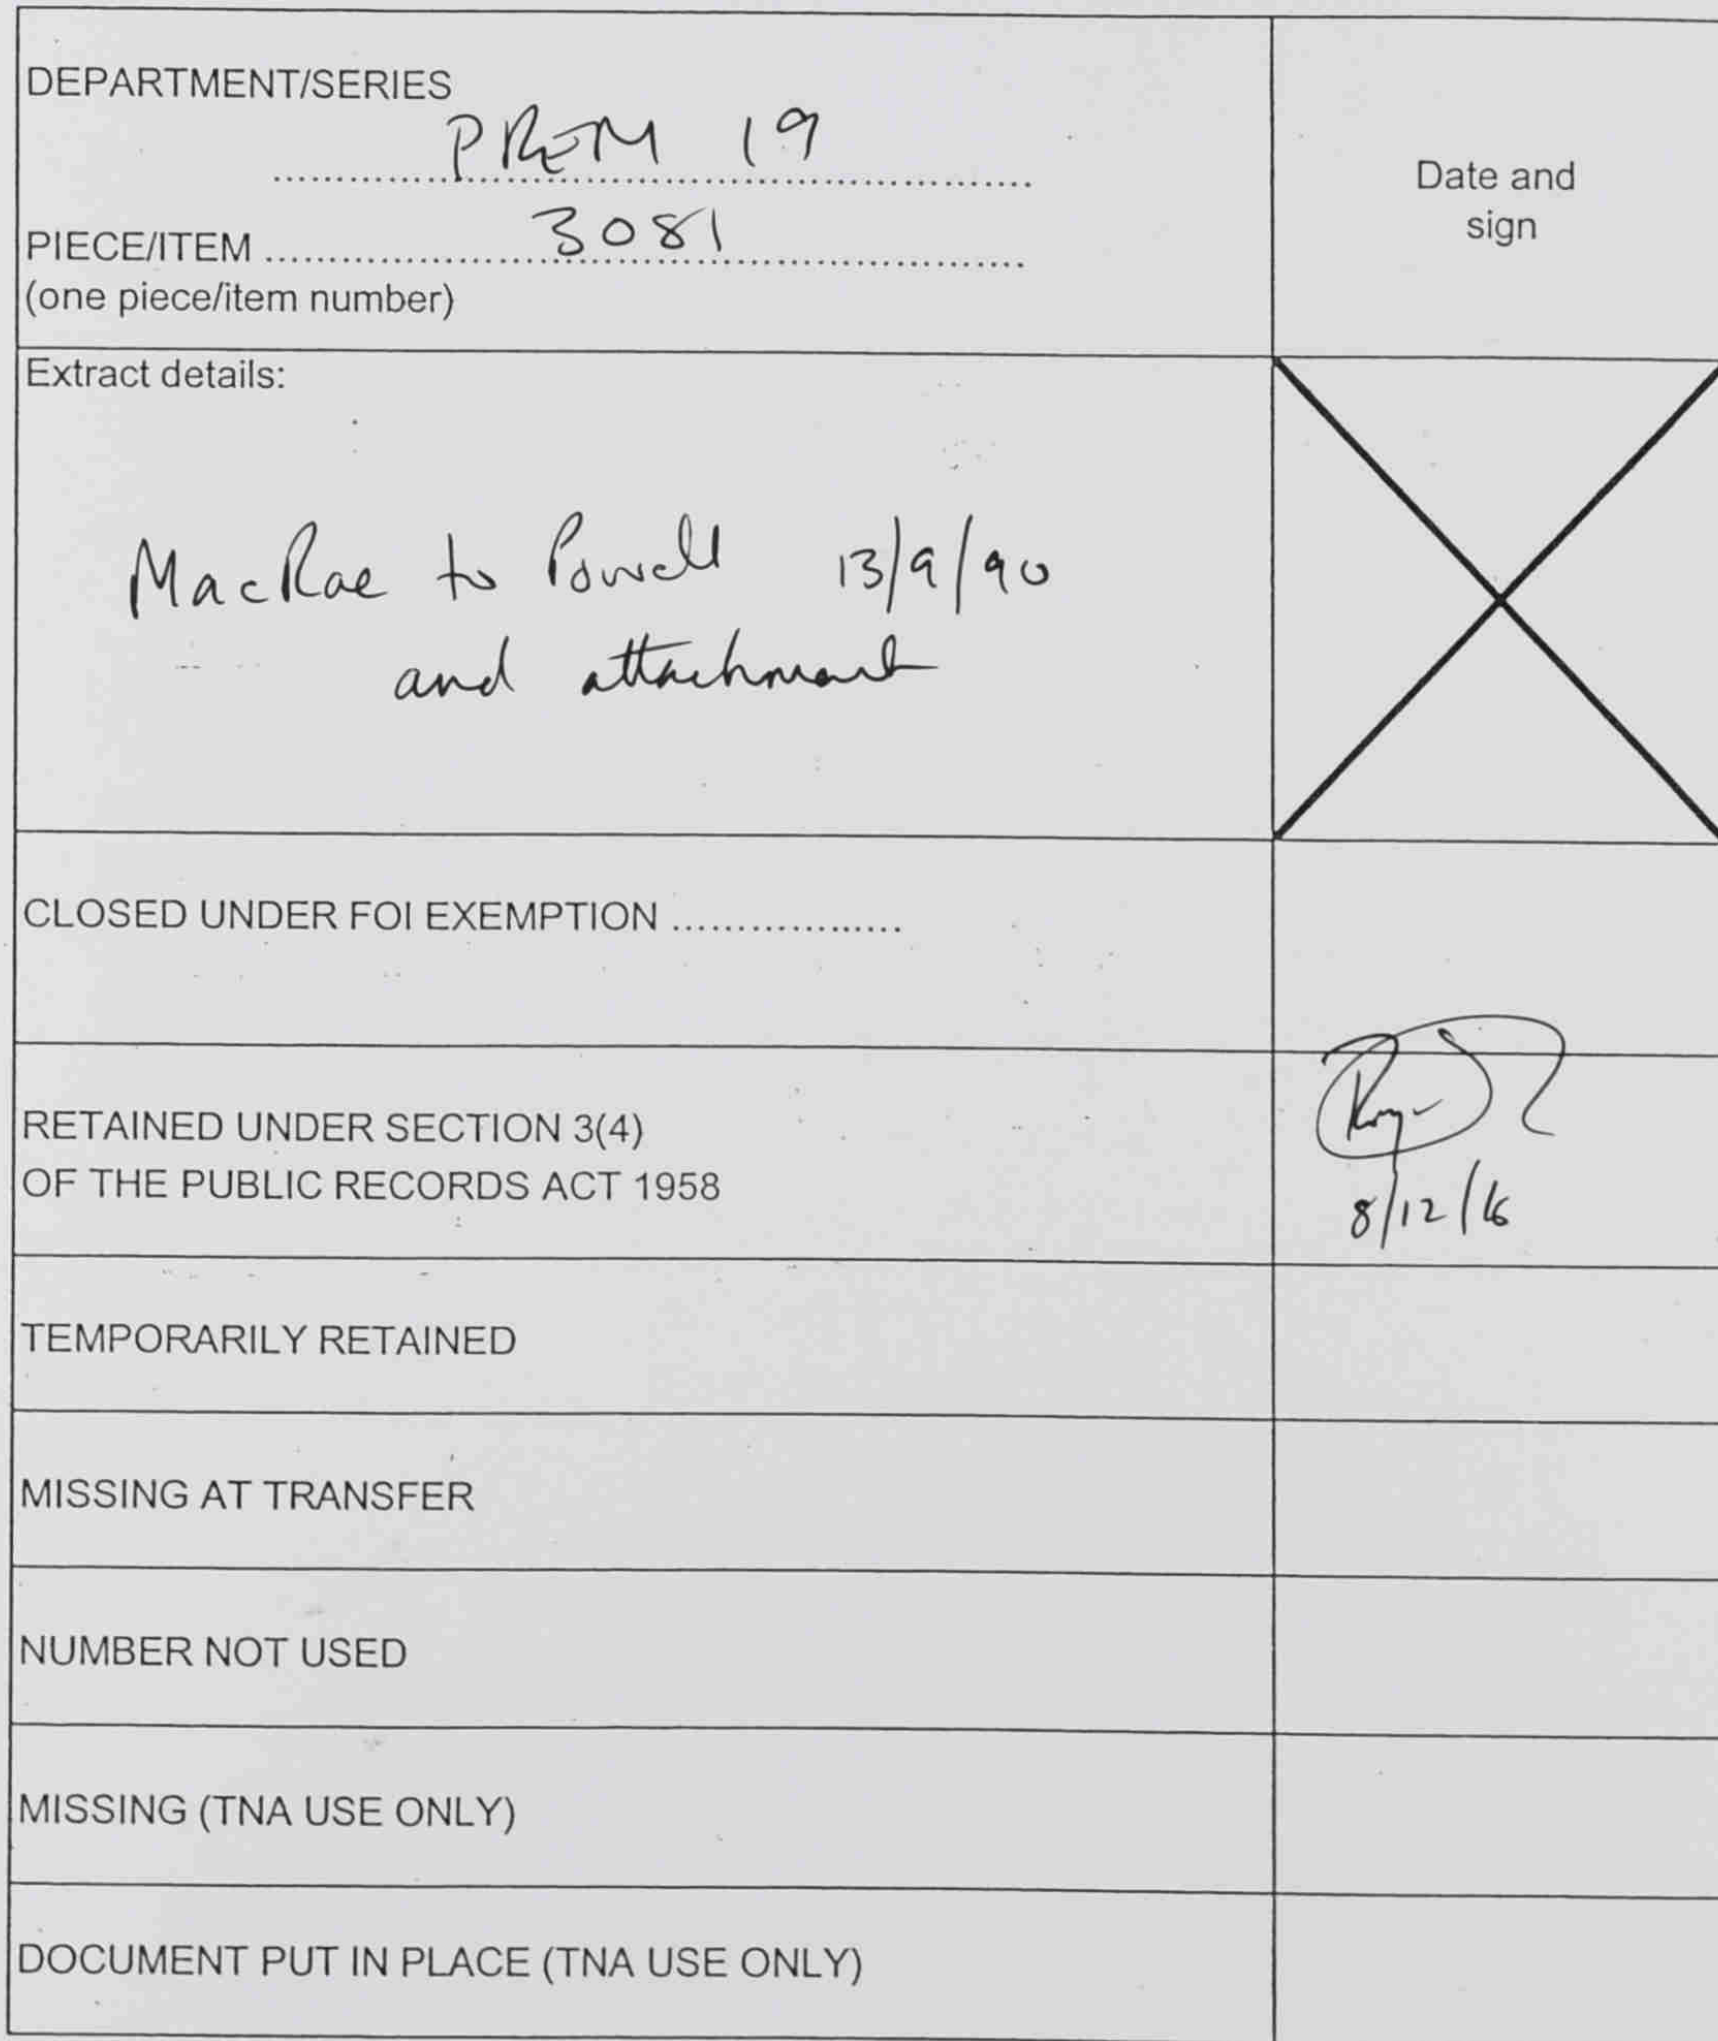 DEPARTMENT/SERIES
PREM 19
Date and
sign
PIECE/ITEM 3081
(one piece/item number)
Extract details:
MacRae to Powell 13/9/90
and attachment
CLOSED UNDER FOI EXEMPTION ..................
RETAINED UNDER SECTION 3(4)
OF THE PUBLIC RECORDS ACT 1958
8/12/16
TEMPORARILY RETAINED
MISSING AT TRANSFER
NUMBER NOT USED
MISSING (TNA USE ONLY)
DOCUMENT PUT IN PLACE (TNA USE ONLY)